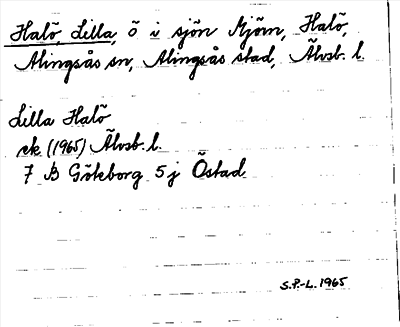 Halö, Lilla, ö i sjön Mjörn, Halö,
Alingsås sn, Alingsås stad, Älvsb. l.
Lilla Halö
ek (1965) Älvsb. l.
7 B Göteborg 5j Östad
S.P.-L. 1965